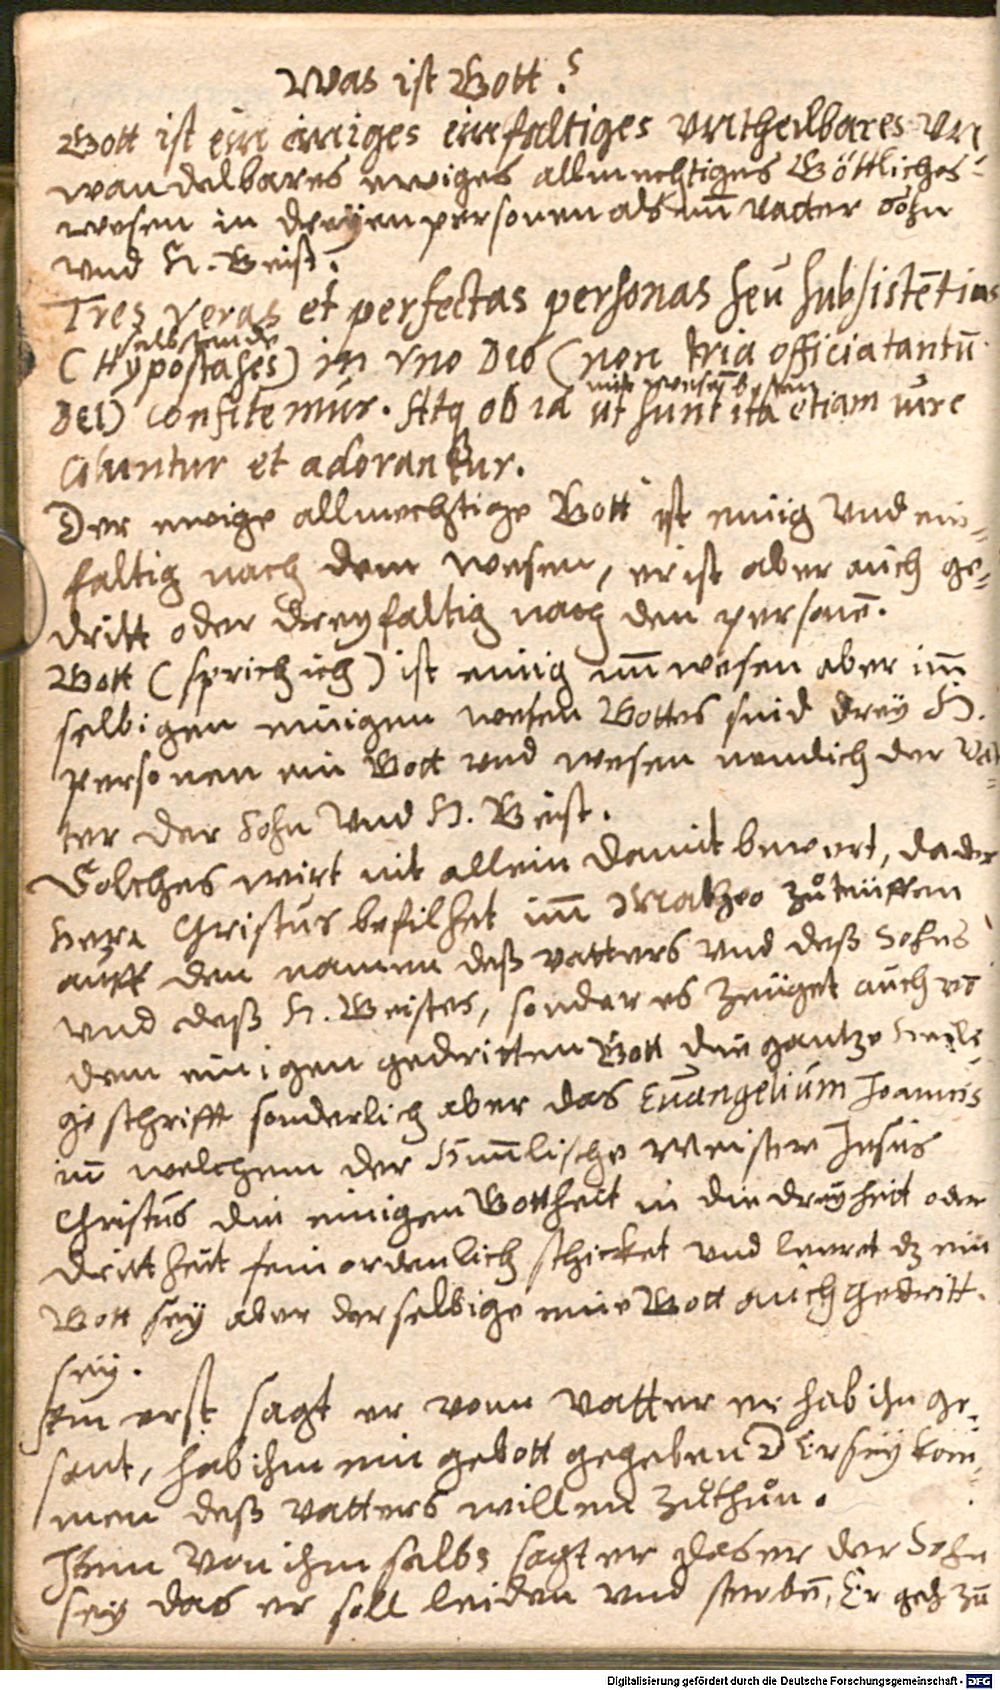 Was ist Gott?
Gott ist ein einiges einfaltiges vntheilbares vn-
wandelbares ewiges allmechtiges Göttliches
wesen in dreÿen personen als im vatter Sohn
vnd H. Geist.
Tres veras et perfectas personas seu subsistētias
selbstende
(Hypostases) in vno Deo (non tria officia tantū
Dei) confitemur. Atq ob id ut sunt ita etiam vere
et adorantur.
Der ewige allmechtige Gott ist einig vnd ein-
faltig nach dem wesen, er ist aber auch ge-
dritt oder dreyfaltig nach den personē.
Gott (sprich ich) ist einig im̄ wesen aber im̄
selbigen einigen wesen Gottes sind dreÿ H.
personen ein Gott vnd wesen nemlich der Vat-
ter der Sohn vnd H. Geist.
Solches wirt nit allein damit bewert, da der
Herr Christus befilhet im̄ Matheo zů teüffen
auff den namen deß vatters vnd deß Sohns
vnd deß H. Geistes, sonder es zeüget auch vō
dem einigen gedritten Gott die gantze Heilig
geschrifft sonderlich aber das Euangelium Joannis
in welchem der Him̄lische Meister Jesus
Christus die einigen Gottheit in die dreyheit oder
drittheit fein ordenlich schicket vnd leeret dz ein
Gott seÿ aber derselbige eine Gott auch gedritt
seÿ.
Zum erst sagt er vonn vatter er hab ihn ge-
sant, hab ihm ein gebott gegeben Er seÿ kom-
men deß vatters willen zůthůn.
Item von ihm selbs sagt er das er der Sohn
sey das er soll leiden vnd sterbē, Er geh zū
Digitalisierung gefördert durch die Deutsche Forschungsgemeinschaft - DFG